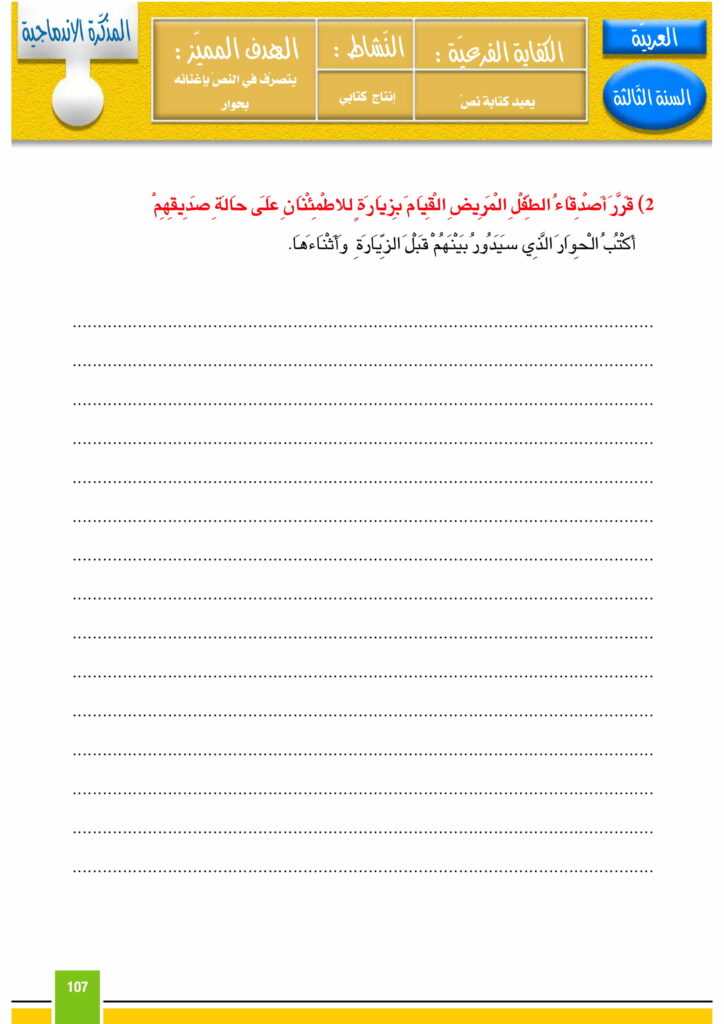 المذكّرة الاندماجية
العربيّة
السنة الثّالثة
الكفاية الفرعيّة :
يعيد كتابة نصّ
النّشاط :
إنتاج كتابي
الهدف المميّز :
يتصرّف في النصّ بإغنائه
بحوار
2) قَرَّرَ أَصْدِقَاءُ الطِّفْلِ الْمَرِيضِ الْقِيَامَ بِزِيَارَةٍ لِلاطْمِئْنَانِ عَلَى حَالَةِ صَدِيقِهِمْ
أَكْتُبُ الْحِوَارَ الَّذِي سَيَدُورُ بَيْنَهُمْ قَبْلَ الزِّيَارَةِ وَأَثْنَاءَهَا.
107